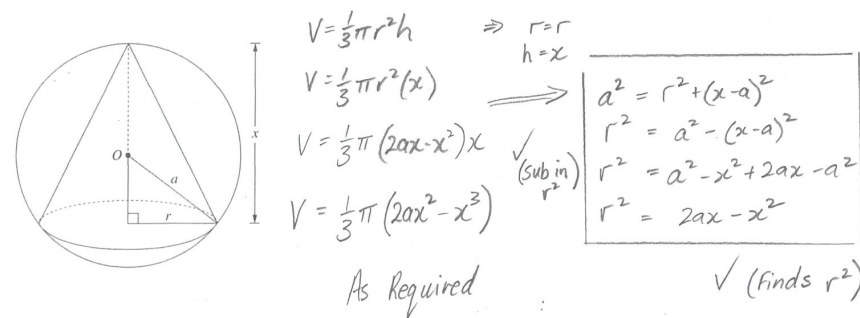 x
O
a
r
V = 1/3 π r² h ⇒ r = r
h = x
V = 1/3 π r² (x)
V = 1/3 π (2ax - x²) x
V = 1/3 π (2ax² - x³)
As Required
✓
(sub in
r²)
a² = r² + (x - a)²
r² = a² - (x - a)²
r² = a² - x² + 2ax - a²
r² = 2ax - x²
✓ (Finds r²)